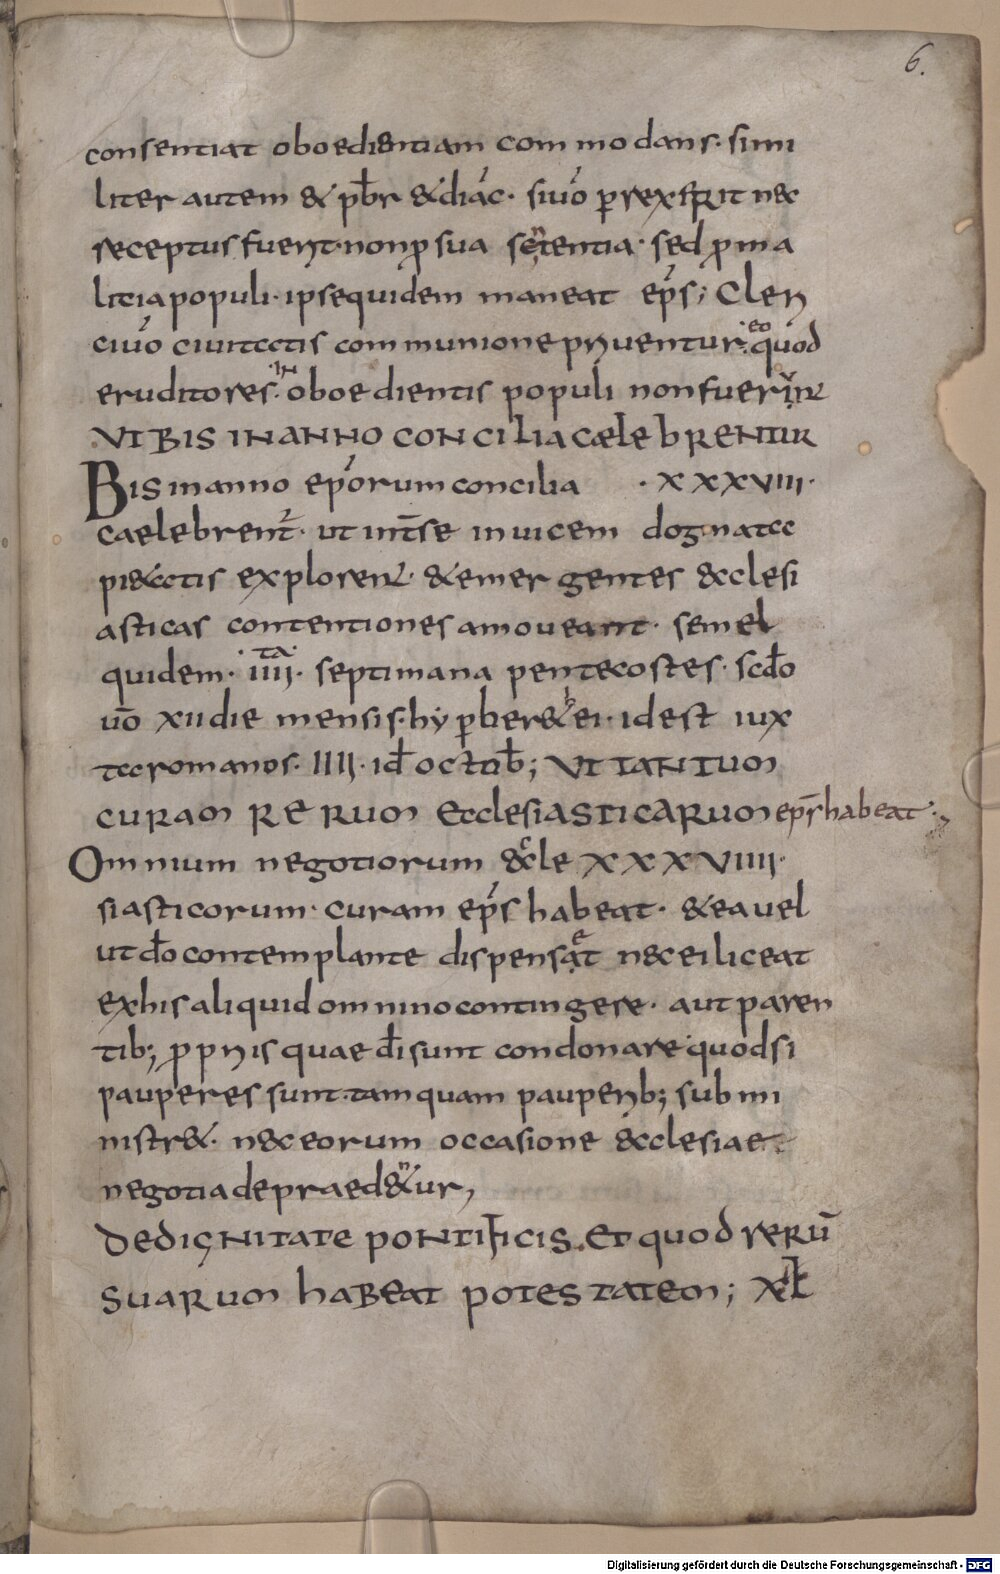 6.
consentiat oboedientiam commodans. simi
liter autem & pbr & diac. siuo p rexerit nec
receptus fuerit. non p sua sententia. sed p ma
litia populi. ipse quidem maneat eps; Cleri
ciuo ciuitatis communione priuentur. eo quod
eruditores. in oboedientis populi non fuerint
UT BIS IN ANNO CONCILIA CAELEBRENTUR
Bis in anno eporum concilia · XXXVIII ·
caelebrent. ut int se inuicem dogmata
pi&atis explorent. & emergentes &clesi
asticas contentiones amoueant. semel
quidem. · IIII ta · septimana pentecostes. scdo
uo xii die mensis. hyperber&ei. id est iux
ta romanos. IIII. id octob; UT TANTUM
CURAM RERUM ECCLESIASTICARUM eps habeat.
Omnium negotiorum &cle XXXVIIII.
siasticorum. curam eps habeat. & ea uel
ut do contemplante dispenset nec ei liceat
ex his aliquid omnino contingere. aut paren
tib; propriis quae di sunt condonare quod si
pauperes sunt. tamquam pauperib; submi
nistr&. nec eorum occasione &clesiae.
negotia depraed&nur,
DE DIGNITATE PONTIFICIS. Et quod rerū
SUARUM HABEAT POTESTATEM; XL
Digitalisierung gefördert durch die Deutsche Forschungsgemeinschaft - DFG